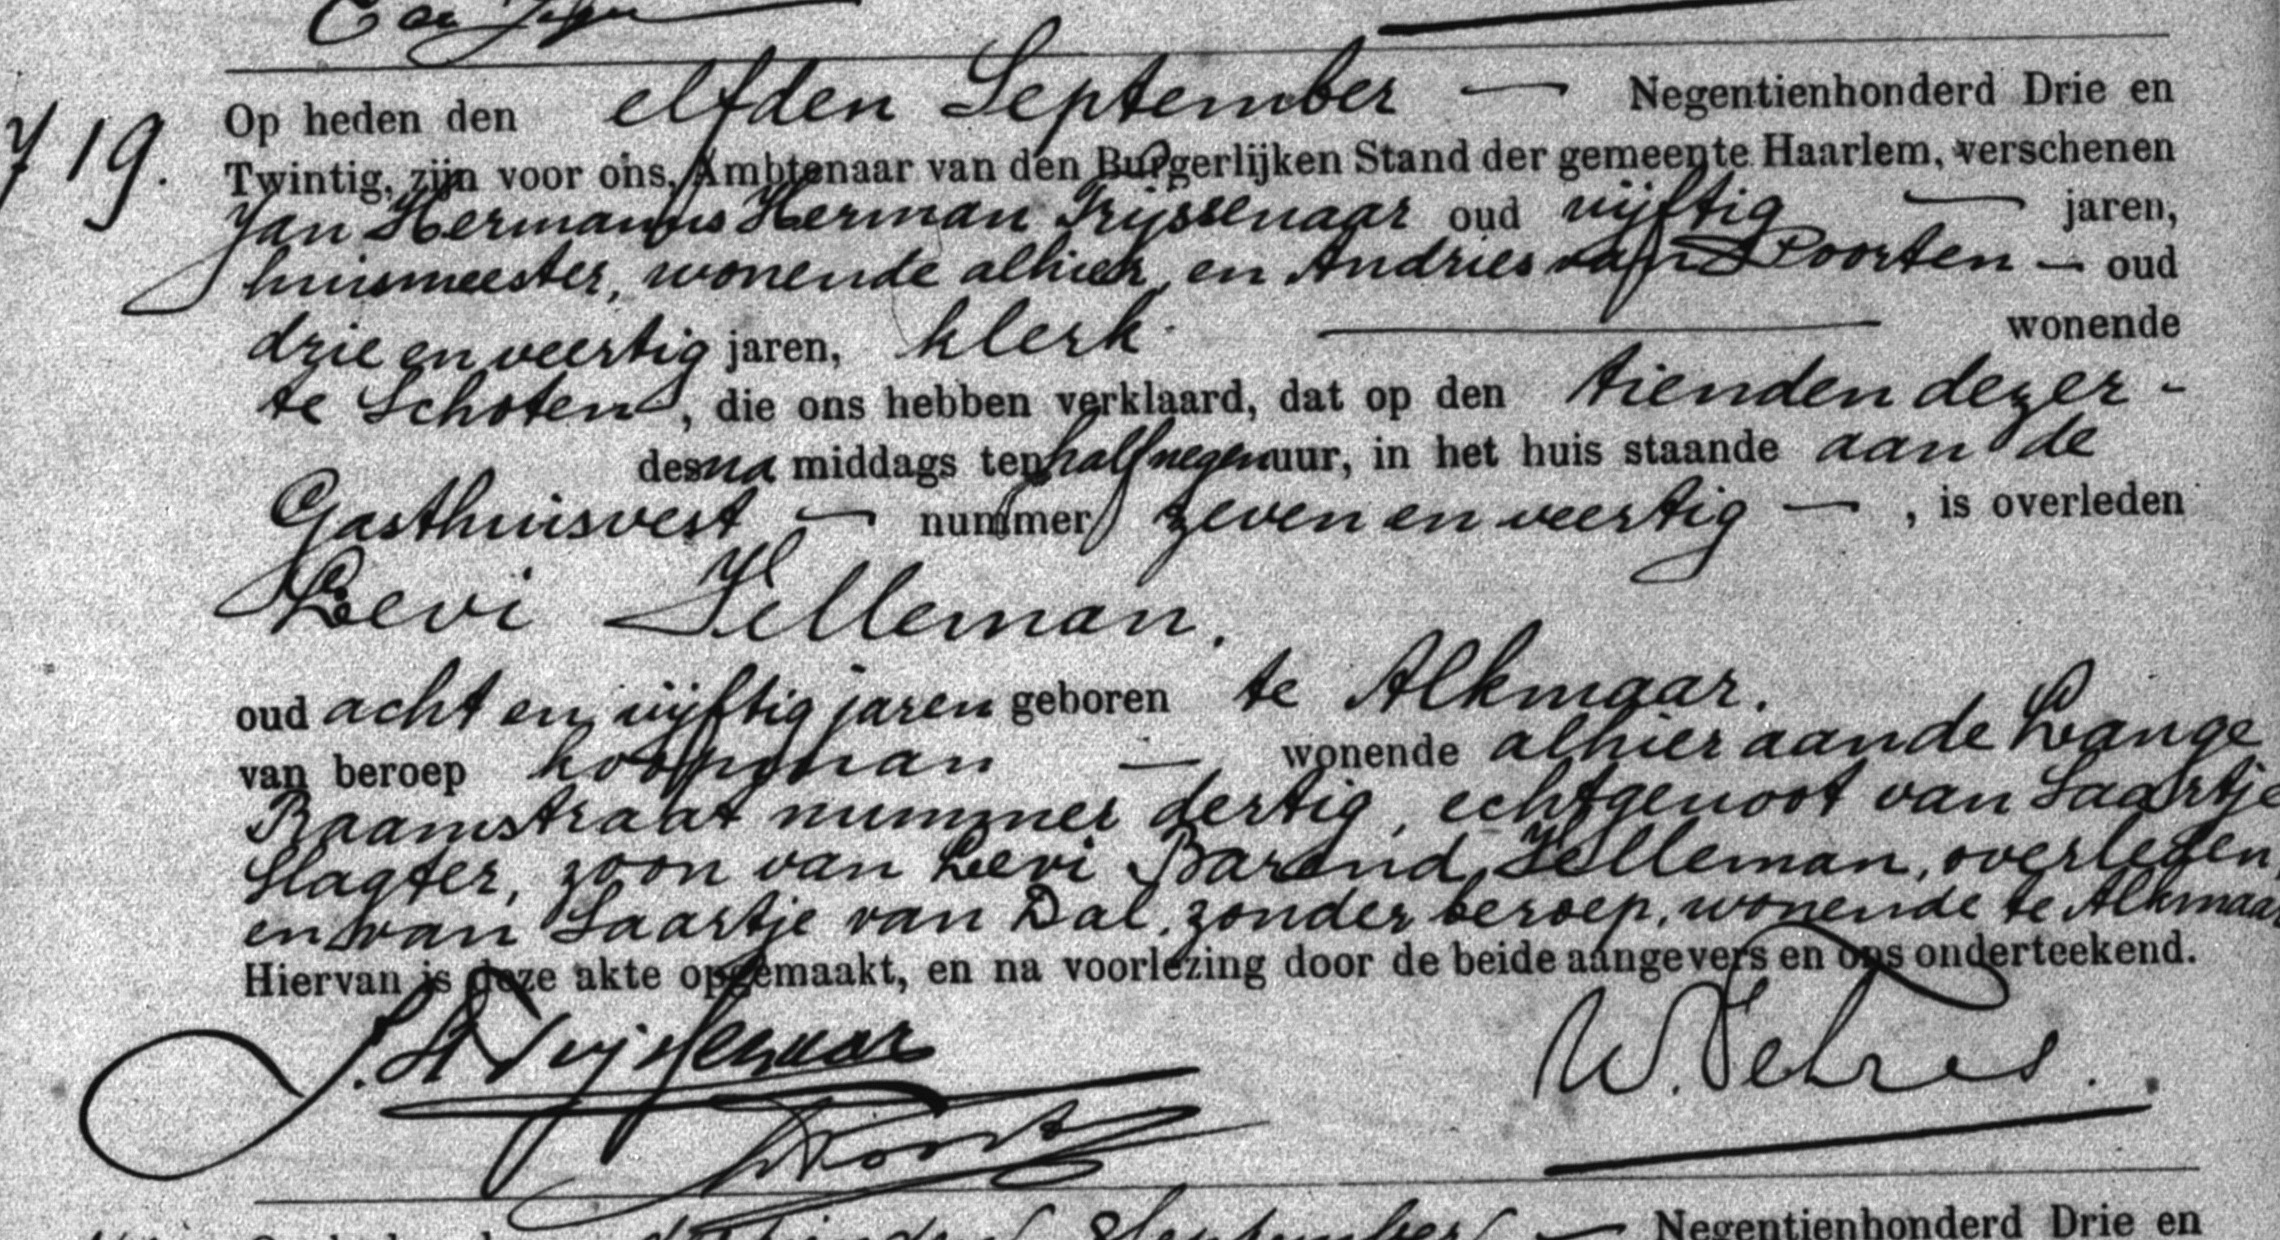 719.
Op heden den elfden September — Negentienhonderd Drie en
Twintig, zijn voor ons, Ambtenaar van den Burgerlijken Stand der gemeente Haarlem, verschenen
Jan Hermanus Herman Trijssenaar oud vijftig — jaren,
huismeester, wonende alhier, en Andries van Poorten — oud
drie en veertig jaren, klerk — wonende
te Schoten, die ons hebben verklaard, dat op den tienden dezer -
des na middags ten half negen uur, in het huis staande aan de
Gasthuisvest — nummer zeven en veertig — , is overleden
Levi Jelleman.
oud acht en vijftig jaren geboren te Alkmaar.
van beroep koopman — wonende alhier aan de Lange
Raamstraat nummer dertig, echtgenoot van Saartje
Slagter, zoon van Levi Barend Jelleman, overleden,
en van Saartje van Dal, zonder beroep, wonende te Alkmaar
Hiervan is deze akte opgemaakt, en na voorlezing door de beide aangevers en ons onderteekend.
W.
September — Negentienhonderd Drie en